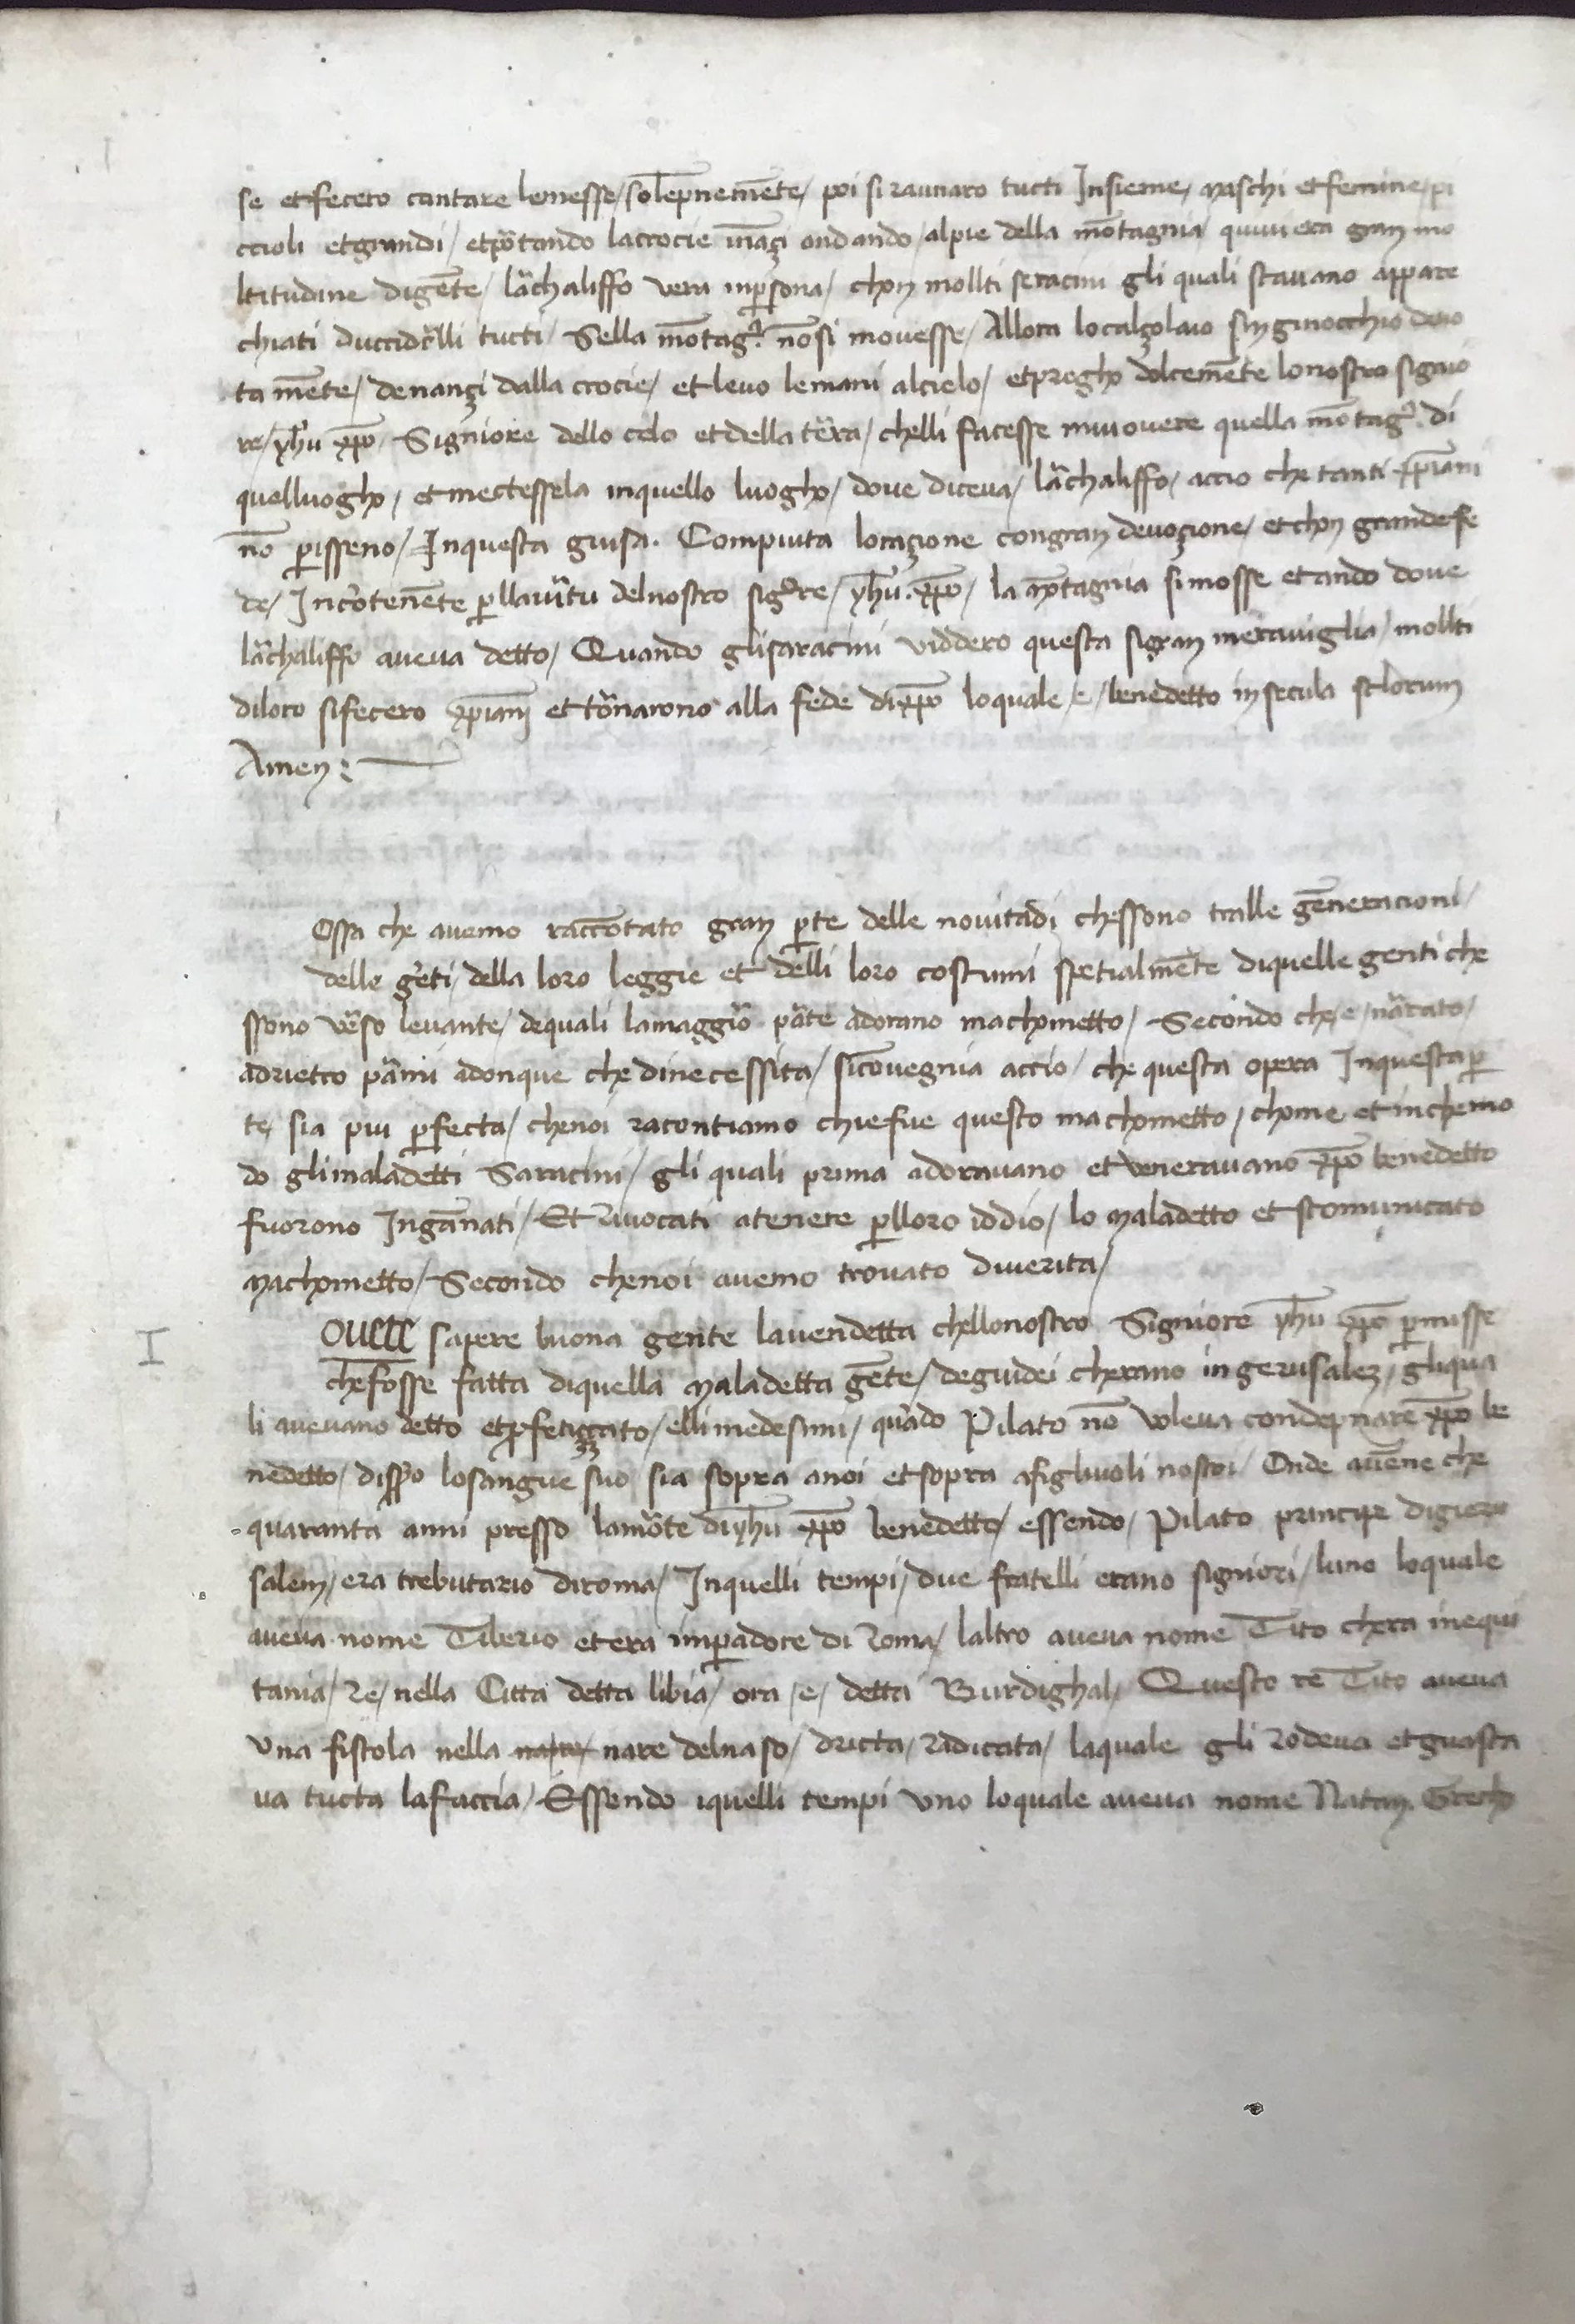 se et fecero cantare lemesse / solēpnemēte / poi si raunaro tucti Insieme / maschi et femine / pi
ccioli et grandi / et pōtando lacrocie īnāçi andando / alpie della mōtagnia / quivi era gran mo
ltitudine digēte / lāchaliffo vera inꝑsona / chon mollti seracini gli quali stavano appare
chiati duccidēlli tucti / Sella mōtagͣ. nōsi movesse / Allora localçolaio singinocchio devo
ta mēte / denançi dalla crocie / et levo lemani alcielo / et pregho dolcemēte lonostro signio
re / yh̄u xp̄o / Signiore dello celo et della tēra / chelli facesse muovere quella mōtagͣ. di
quelluogho / et mectessela inquello luogho / dove diceva / lāchaliffo / accio che tanti xp̄iani
nō ꝑisseno / Inquesta guisa. Compiuta loraçione congran devoçione / et chon grande fe
de / Incōtenēte ꝑllavītu delnostro sigͦre / yh̄u. xp̄o / la mōtagnia simosse et ando dove
lāchaliffo aveva detto / Quando glisaracini viddero questa sigran meraviglia / mollti
diloro sifecero xp̄iani et tōnarono alla fede dixp̄o loquale / e / benedetto in secula sc̄lorum
Amen :
Ossa che avemo raccōtato gran ꝑte delle novitadi chessono tralle gēneracioni /
delle gēti / della loro leggie et delli loro costumi spetialmēte diquelle genti che
ssono vēso levante / dequali lamaggiō pāte adorano machometto / Secondo che / e / nārato /
adrietro pāmi adonque che dinecessita / sicōvegnia accio / che questa opera Inquesta ꝑ
te / sia piu ꝑfecta / chenoi racontiamo chiefue questo machometto / chome et inchemo
do glimaladetti Saracini / gli quali prima adoravano et veneravano xp̄o benedetto
fuorono Ingānati / Et rivocati atenere ꝑlloro iddio / lo maladetto et scomunicato
machometto / Secondo chenoi avemo trovato diverita /
I
sapere buona gente lavendetta chellonostro Signiore yh̄u xp̄o ꝑmisse
chefosse fatta diquella maladetta gēte / deguidei cherano in gerusalez / gliqua
li avevano detto et ꝓfetiççato / elli medesimi / quādo Pilato nō voleva condepnare xp̄o be
nedetto / losangue suo sia sopra anoi et sopra afigliuoli nostri / Onde avēne che
quaranta anni presso lamōte diyh̄u xp̄o benedetto / essendo / Pilato principe digieru
salem / era trebutario diroma / Inquelli tempi / due fratelli erano signiori / luno loquale
aveva nome Tiberio et era inꝑadore di Roma / laltro aveva nome Tito chera inequi
tania / Re / nella Citta detta libia / ora / e / detta Burdighal / Questo re Tito aveva
una fistola nella nare delnaso / dricta / radicata / laquale gli rodeva et guasta
va tucta lafaccia / Essendo iquelli tempi uno loquale aveva nome Natan. Grecho